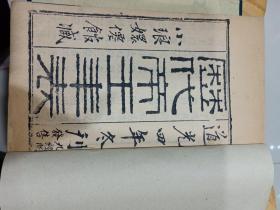 道光四年冬刊
歷代帝王年表
小琅嬛僊館藏